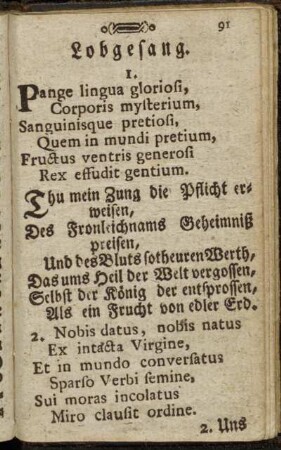 91
Lobgesang.
1.
Pange lingua gloriosi,
Corporis mysterium,
Sanguinisque pretiosi,
Quem in mundi pretium,
Fructus ventris generosi
Rex effudit gentium.
Thu mein Zung die Pflicht er-
weisen,
Des Fronleichnams Geheimniß
preisen,
Und des Bluts so theuren Werth,
Das ums Heil der Welt vergossen,
Selbst der König der entsprossen,
Als ein Frucht von edler Erd.
2. Nobis datus, nobis natus
Ex intacta Virgine,
Et in mundo conversatus
Sparso Verbi semine,
Sui moras incolatus
Miro clausit ordine.
2. Uns